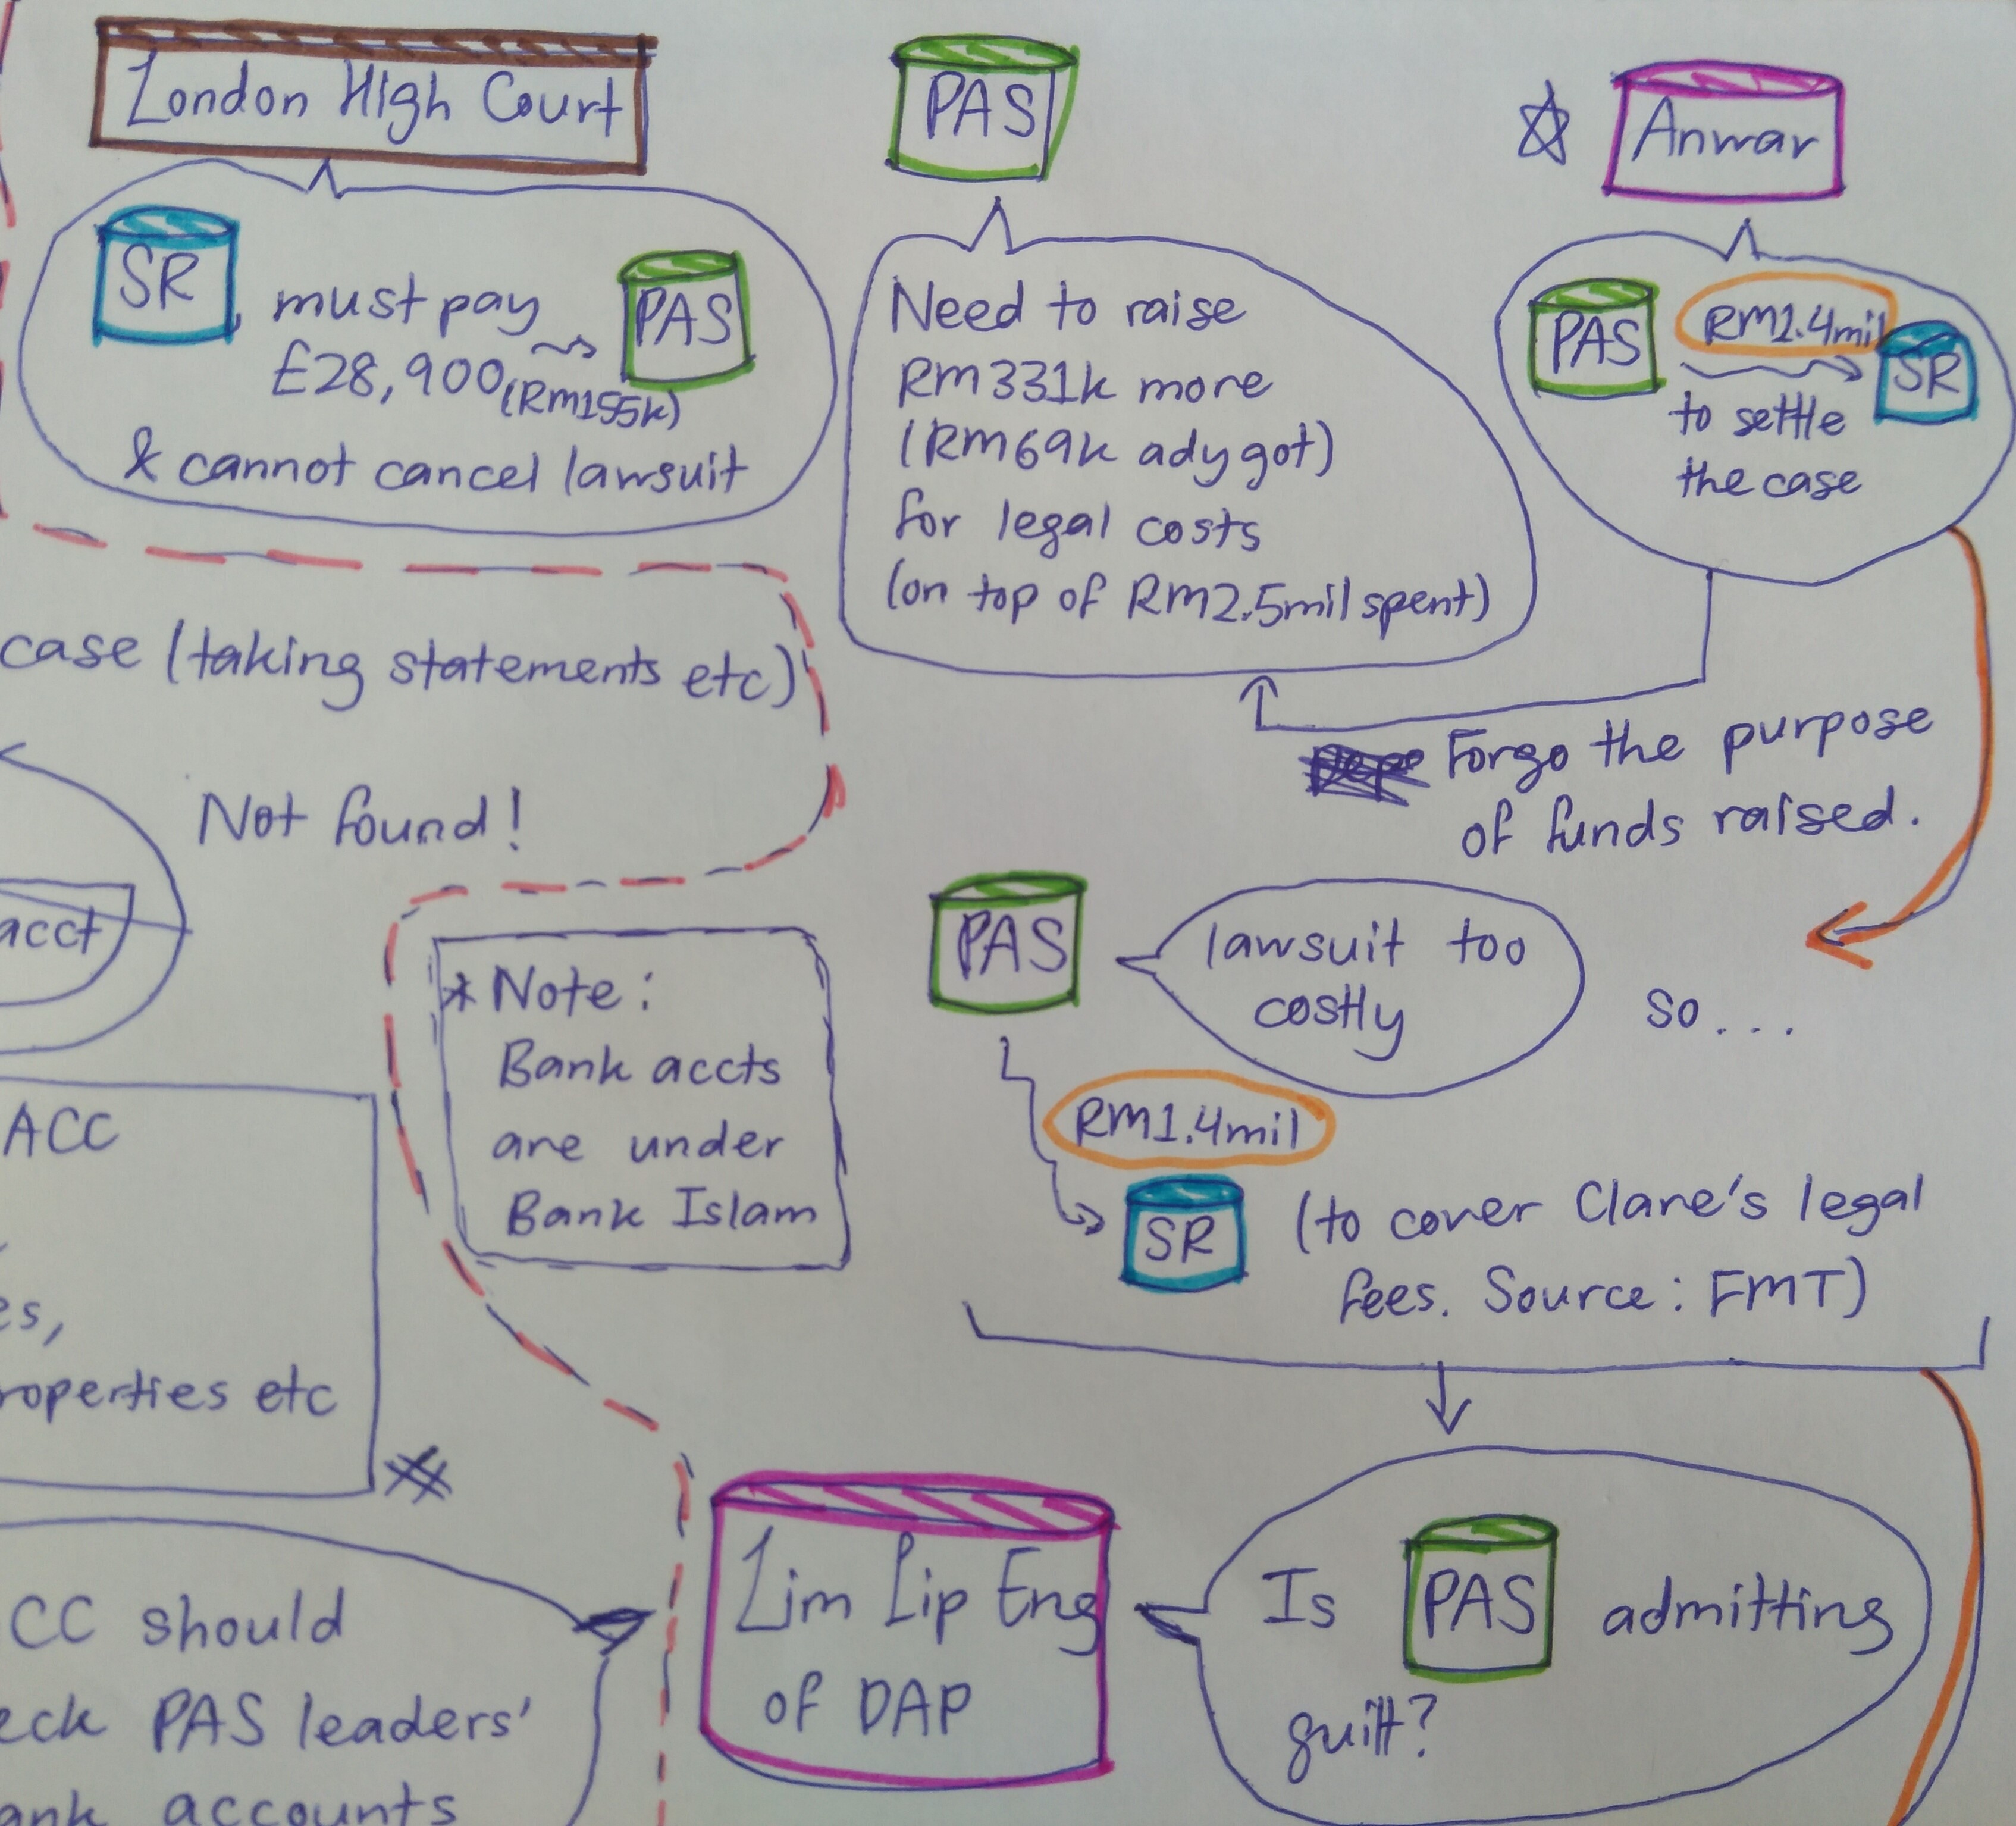 London High Court
SR must pay PAS
£28,900 (RM155k)
& cannot cancel lawsuit
PAS
Need to raise
RM331k more
(RM69k ady got)
for legal costs
(on top of RM2.5mil spent)
Anwar
PAS RM1.4mil SR
to settle
the case
Forgo the purpose
of funds raised.
case (taking statements etc)
Not found!
acct
* Note:
Bank accts
are under
Bank Islam
PAS
lawsuit too
costly
so...
RM1.4mil
SR (to cover Clare's legal
fees. Source: FMT)
ACC
es,
roperties etc
CC should
eck PAS leaders'
ank accounts
Lim Lip Eng
of DAP
Is PAS admitting
guilt?